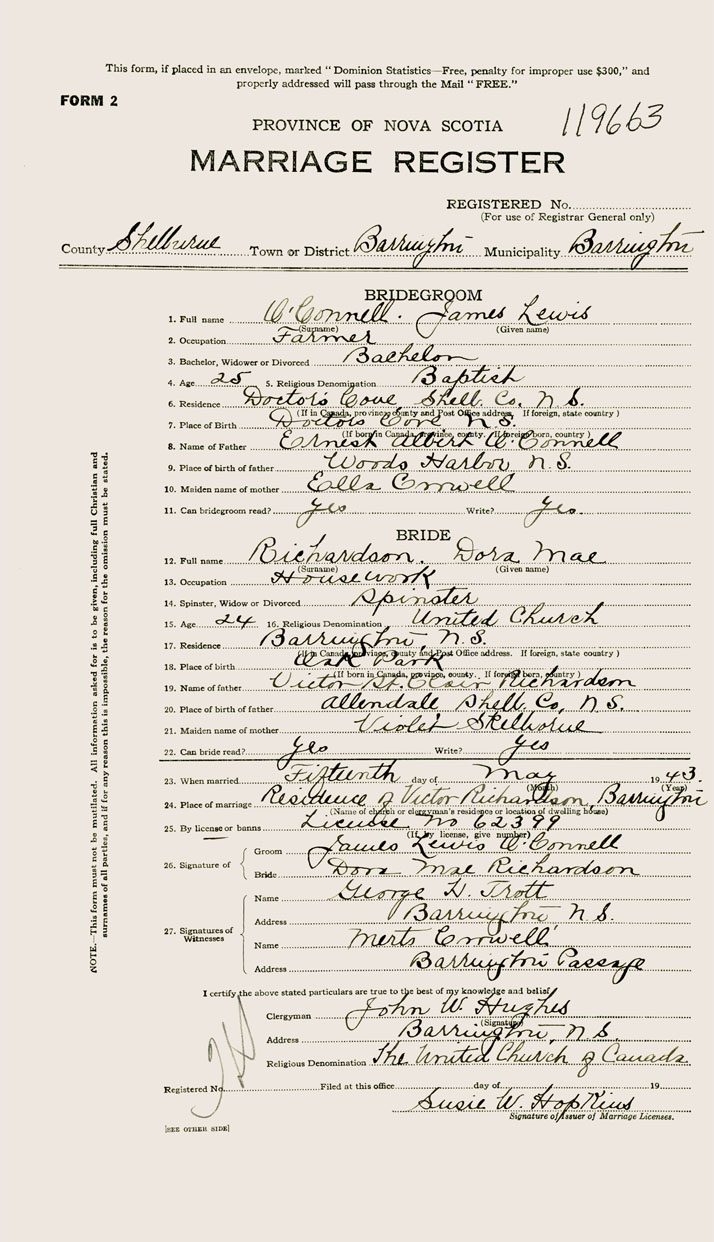 This form, if placed in an envelope, marked " Dominion Statistics—Free, penalty for improper use $300," and
properly addressed will pass through the Mail " FREE."
FORM 2
119663
PROVINCE OF NOVA SCOTIA
MARRIAGE REGISTER
REGISTERED No.
(For use of Registrar General only)
County Shelburne Town or District Barrington Municipality Barrington
BRIDEGROOM
1. Full name O'Connell. James Lewis
(Surname) (Given name)
2. Occupation Farmer
3. Bachelor, Widower or Divorced Bachelor
4. Age 25 5. Religious Denomination Baptish
6. Residence Doctors Cove Shell. Co. N. S.
(If in Canada, province, county and Post Office address. If foreign, state country )
7. Place of Birth Doctors Cove N. S.
(If born in Canada, province, county. If foreign born, country )
8. Name of Father Ernest Albert O'Connell
9. Place of birth of father Woods Harbor N. S.
10. Maiden name of mother Ella Crowell
11. Can bridegroom read? yes Write? yes.
BRIDE
12. Full name Richardson, Dora Mae
(Surname) (Given name)
13. Occupation Housework
14. Spinster, Widow or Divorced Spinster
15. Age 24 16. Religious Denomination United Church
17. Residence Barrington, N. S.
(If in Canada, province, county and Post Office address. If foreign, state country )
18. Place of birth Oak Park
(If born in Canada, province, county. If foreign born, country )
19. Name of father Victor St. Clair Richardson
20. Place of birth of father Allendale Shell. Co, N. S.
21. Maiden name of mother Violet Skelhorne
22. Can bride read? yes Write? yes
23. When married Fifteenth day of May 1943.
(Month) (Year)
24. Place of marriage Residence of Victor Richardson, Barrington
(Name of church or clergyman's residence or location of dwelling house)
25. By license or banns License No 62399
(If by license, give number)
26. Signature of Groom James Lewis O'Connell
Bride Dora Mae Richardson
27. Signatures of Witnesses
Name George H. Trott
Address Barrington N S.
Name Merts Crowell
Address Barrington Passage
I certify the above stated particulars are true to the best of my knowledge and belief,
Clergyman John W. Hughes
(Signature)
Address Barrington, N. S.
Religious Denomination The United Church of Canada
Registered No. Filed at this office day of 19
Susie W. Hopkins
Signature of Issuer of Marriage Licenses.
[SEE OTHER SIDE]
NOTE.—This form must not be mutilated. All information asked for is to be given, including full Christian and
surnames of all parties, and if for any reason this is impossible, the reason for the omission must be stated.